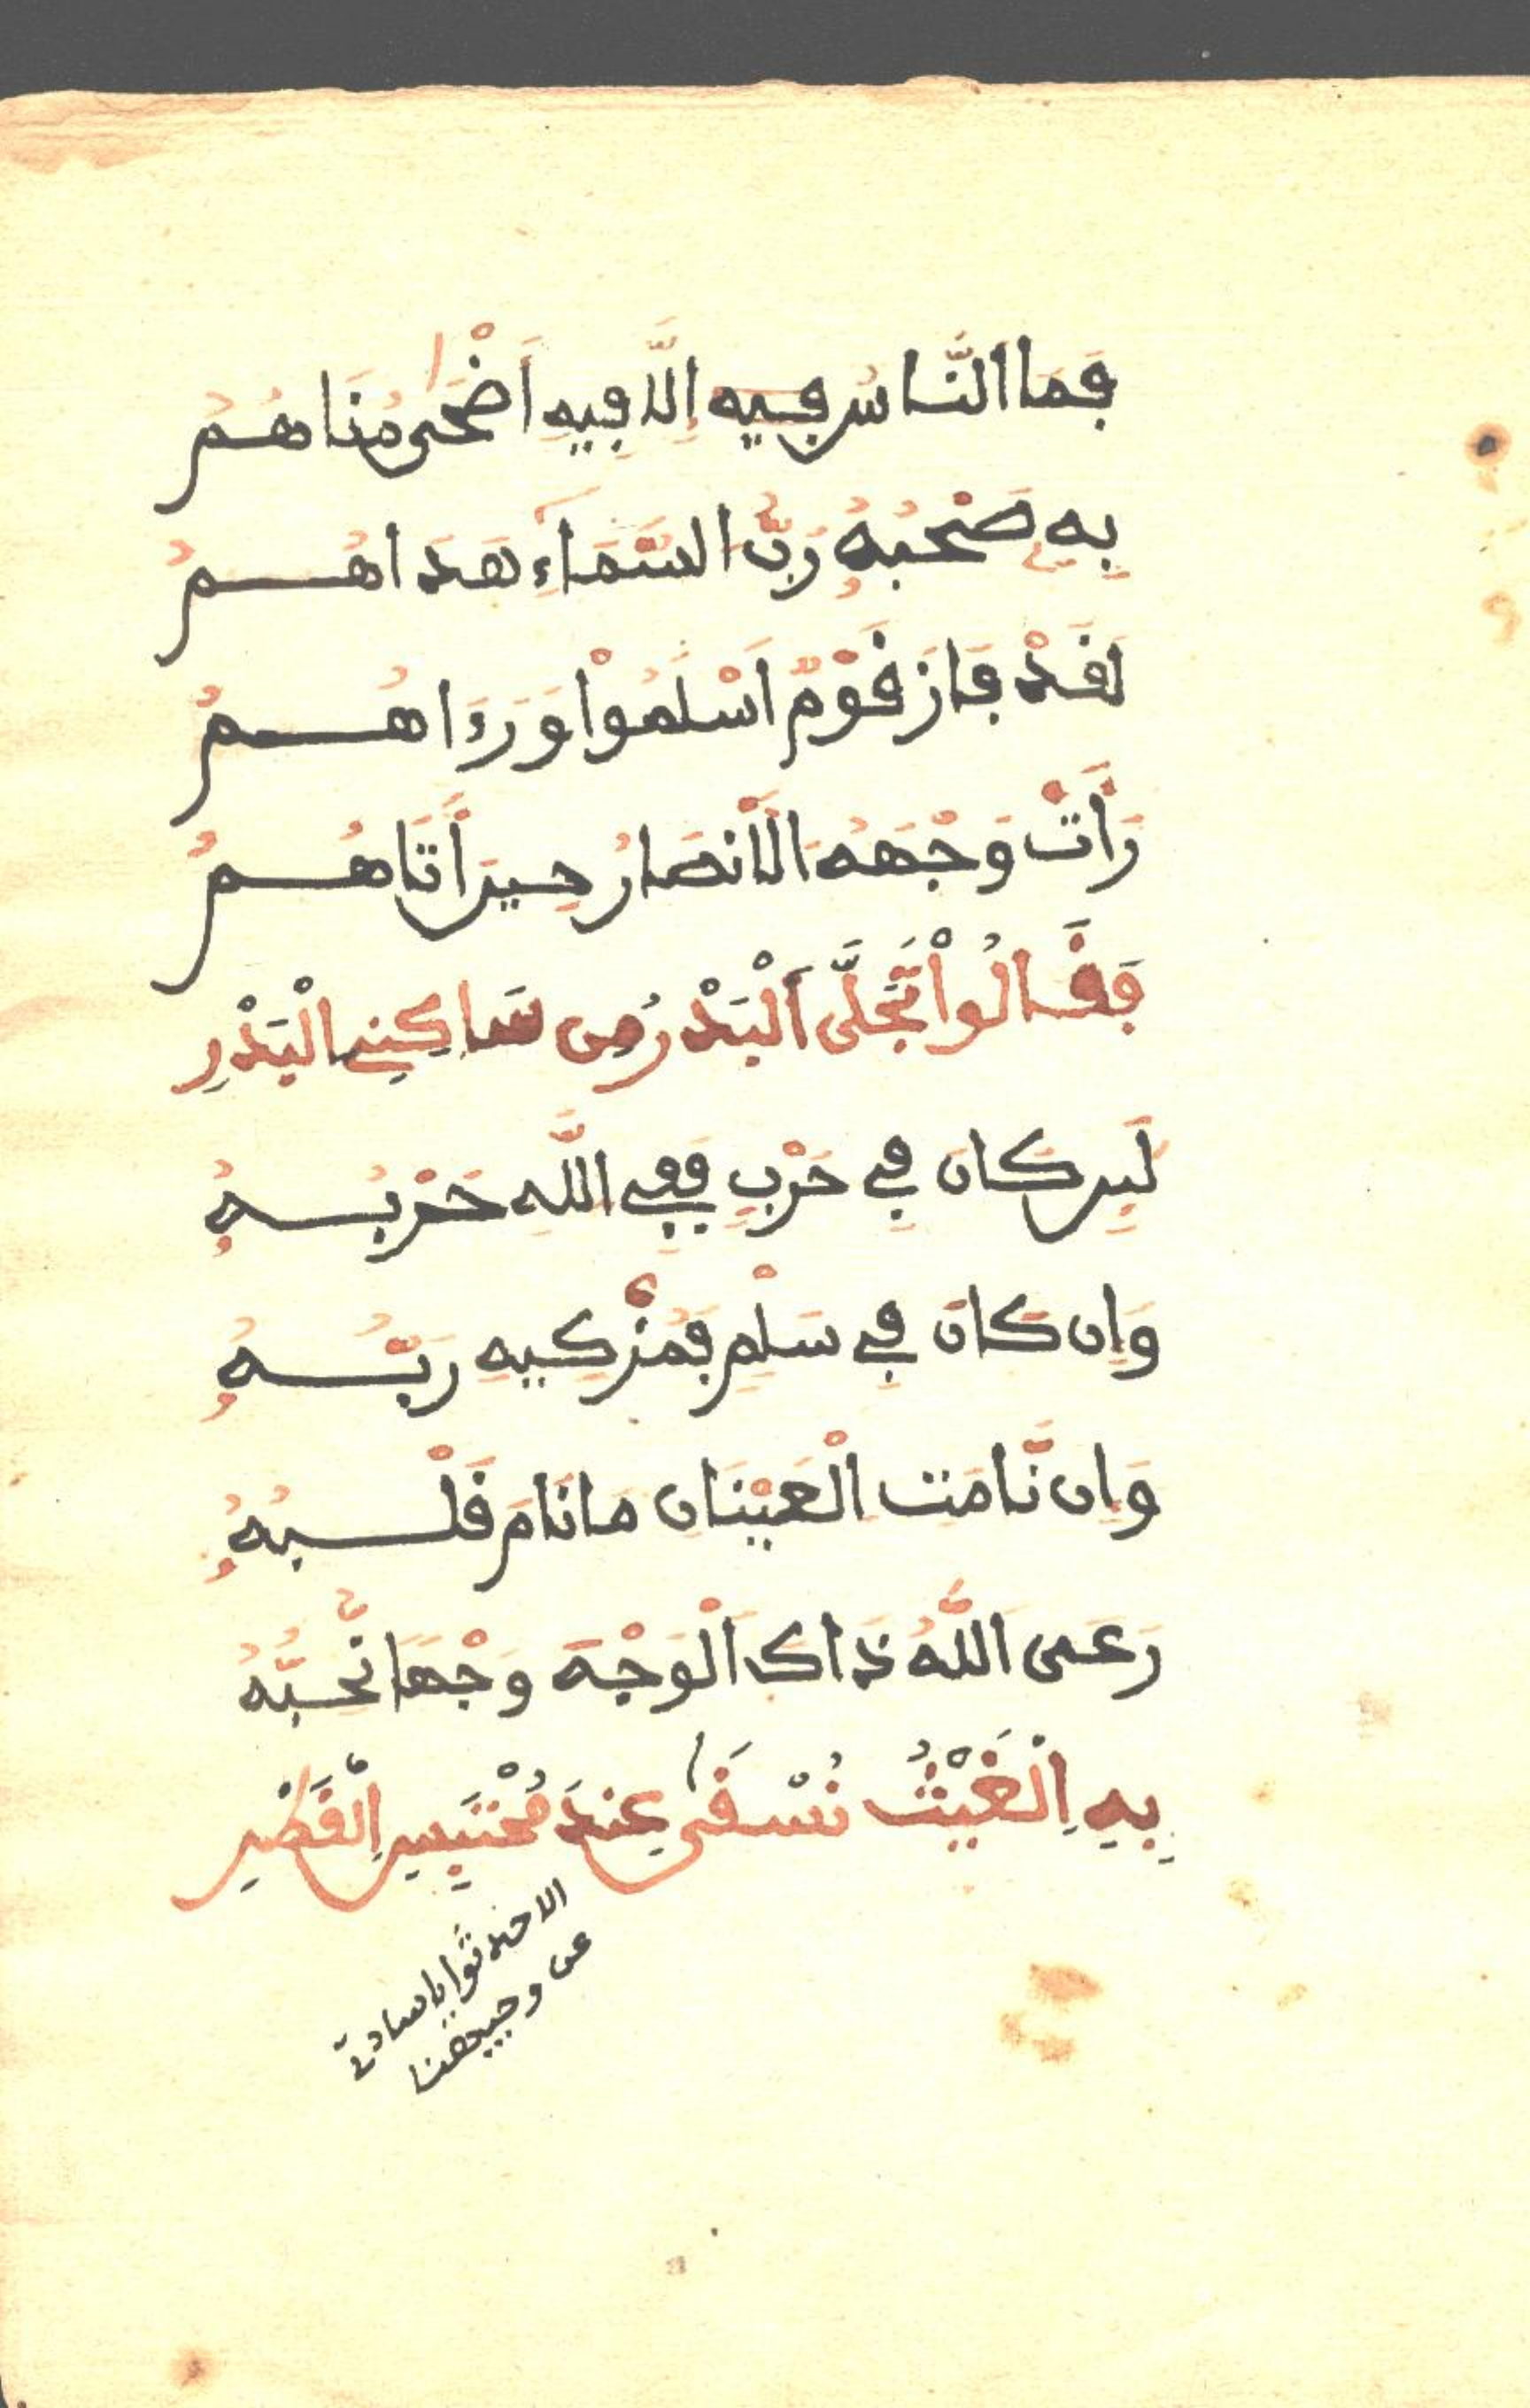 فَمَا النَّاسُ فِيهِ إِلَّا فِيهِ أَضْحَى مُنَاهُمُ
بِهِ صَحْبُهُ رَبُّ السَّمَاءِ هَدَاهُمُ
لَقَدْ فَازَ قَوْمٌ اَسْلَمُواْ وَرَءَاهُمُ
رَأَتْ وَجْهَهُ الْأَنصَارُ حِينَ أَتَاهُمُ
فَقَالُواْ تَجَلَّى اَلْبَدْرُ مِن سَاكِنِي الْبَدْرِ
لَئِن كَانَ فِي حَرْبٍ فَفِي اللَّهِ حَرْبُهُ
وَإِن كَانَ فِي سَلْمٍ فَمُزْكِيهِ رَبُّهُ
وَإِن نَّامَتِ الْعَيْنَانِ مَا نَامَ قَلْبُهُ
رَعَى اَللَّهُ ذَاكَ اَلْوَجْهَ وَجْهًا نُّحِبُّهُ
بِهِ اِلْغَيْثُ نُسْقَى عِندَ مُحْتَبِسِ اِلْقَطْرِ
عن وجيهنا